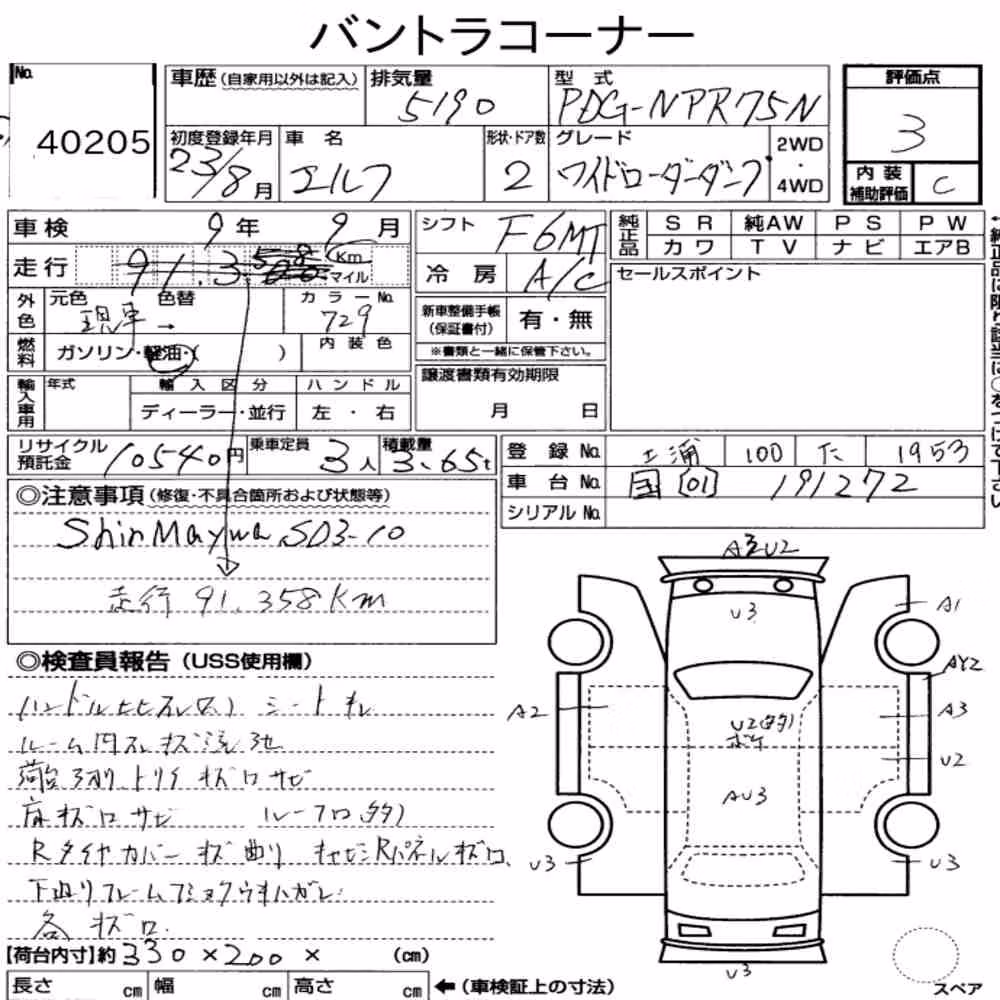 バントラコーナー
No. 40205
車歴 (自家用以外は記入) 排気量 5190 型式 PDG-NPR75N
初度登録年月 23/8月 車名 エルフ 形状・ドア数 2 グレード ワイドローダーダンプ 2WD・4WD
評価点 3
内装補助評価 C
車検 9年 9月
走行 91.3 Km マイル
シフト F6MT
冷房 A/C
純正品 SR 純AW PS PW
カワ TV ナビ エアB
セールスポイント
外色 元色 現車→ 色替 カラーNo. 729
新車整備手帳(保証書付) 有・無
※書類と一緒に保管下さい。
燃料 ガソリン・軽油・( ) 内装色
譲渡書類有効期限
月 日
輸入車用 年式 輸入区分 ハンドル
ディーラー・並行 左・右
リサイクル預託金 10540円 乗車定員 3人 積載量 3.65t
登録No. 土浦 100 た 1953
車台No. 国[01] 191272
シリアルNo.
◎注意事項 (修復・不具合箇所および状態等)
ShinMaywa SD3-10
走行 91.358Km
◎検査員報告 (USS使用欄)
シートキレ
ルーム内スレキズ汚レ
サビ
床キズ凹サビ
Rタイヤカバーキズ曲り キャビンRパネルキズ凹
下廻りフレーム
各キズ凹.
[荷台内寸]約 330×200× (cm)
長さ cm 幅 cm 高さ cm ←(車検証上の寸法)
U3
A1
AY2
A2
A3
U2
ボケ
AU3
U3
U3
U3
スペア